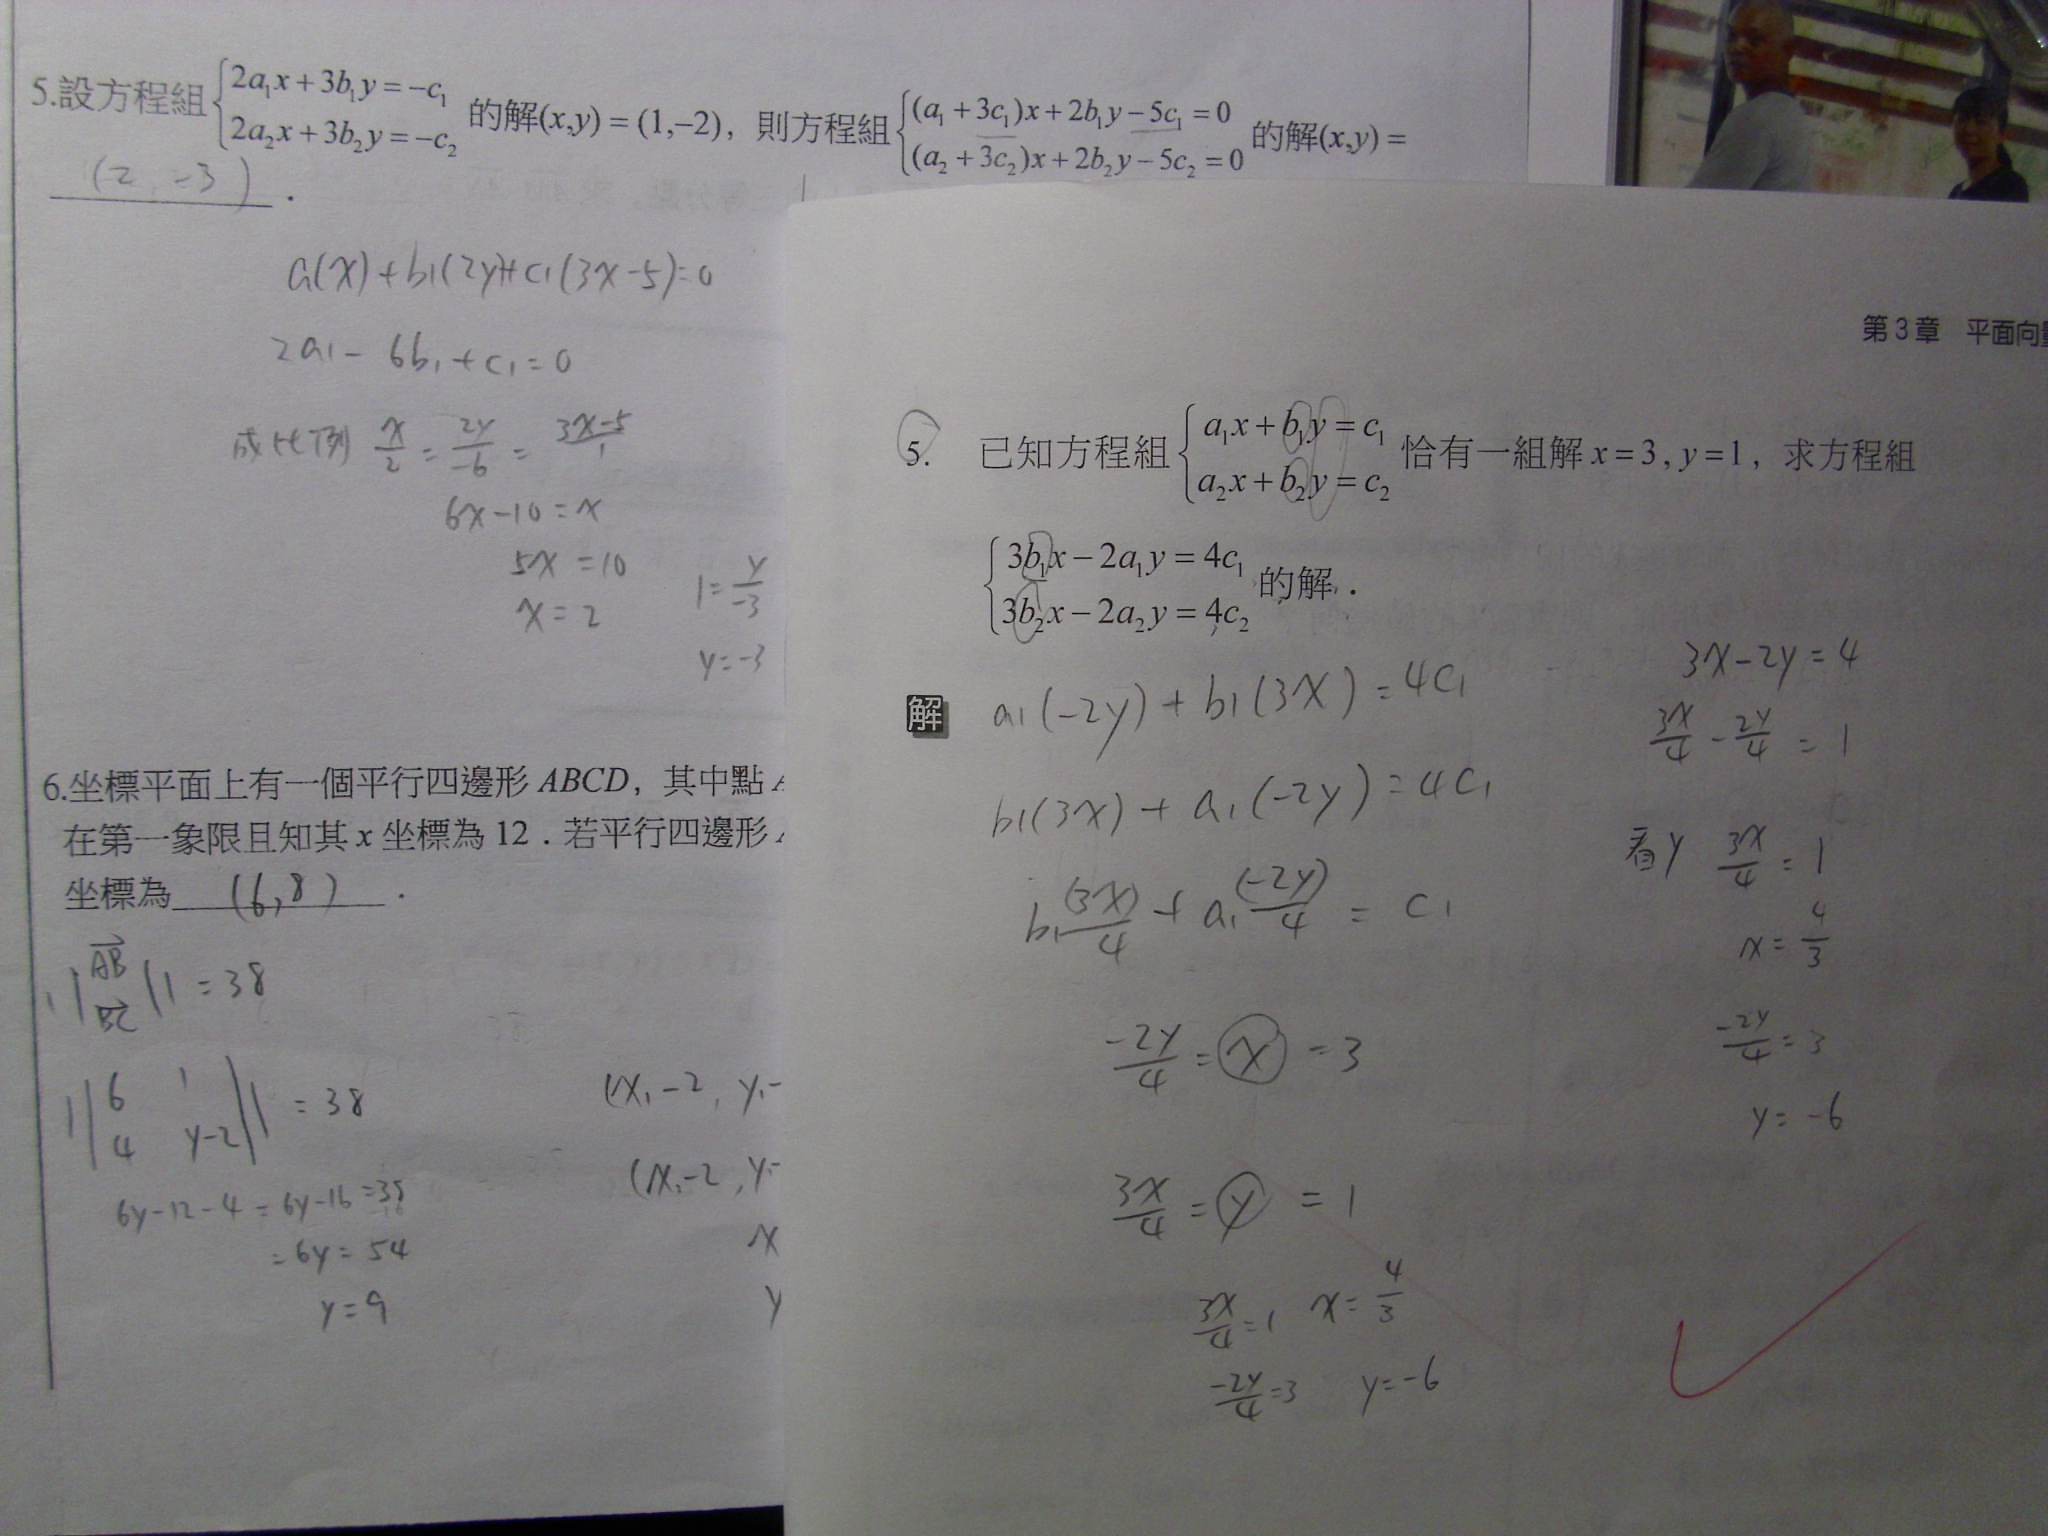 5.設方程組 { 2a₁x + 3b₁y = −c₁
2a₂x + 3b₂y = −c₂ 的解(x,y) = (1,−2)，則方程組 { (a₁ + 3c₁)x + 2b₁y − 5c₁ = 0
(a₂ + 3c₂)x + 2b₂y − 5c₂ = 0 的解(x,y) =
(2, −3) .
a₁(x) + b₁(2y) + c₁(3x−5) = 0
2a₁ − 6b₁ + c₁ = 0
成比例 x/2 = 2y/−6 = 3x−5/1
6x−10 = x
5x = 10
x = 2
1 = y/−3
y = −3
6.坐標平面上有一個平行四邊形 ABCD，其中點
在第一象限且知其 x 坐標為 12．若平行四邊形
坐標為 (6,8) .
||AB
BC|| = 38
||6 1
4 y−2|| = 38
6y−12−4 = 6y−16 = 38
= 6y = 54
y = 9
(x₁−2, y₁−
(x₁−2, y−
x
y
第 3 章 平面向
5. 已知方程組 { a₁x + b₁y = c₁
a₂x + b₂y = c₂ 恰有一組解 x = 3 , y = 1，求方程組
{ 3b₁x − 2a₁y = 4c₁
3b₂x − 2a₂y = 4c₂ 的解．
解 a₁(−2y) + b₁(3x) = 4c₁
b₁(3x) + a₁(−2y) = 4c₁
b₁(3x)/4 + a₁(−2y)/4 = c₁
−2y/4 = x = 3
3x/4 = y = 1
3x/4 = 1 x = 4/3
−2y/4 = 3 y = −6
3x−2y = 4
3x/4 − 2y/4 = 1
看y 3x/4 = 1
x = 4/3
−2y/4 = 3
y = −6